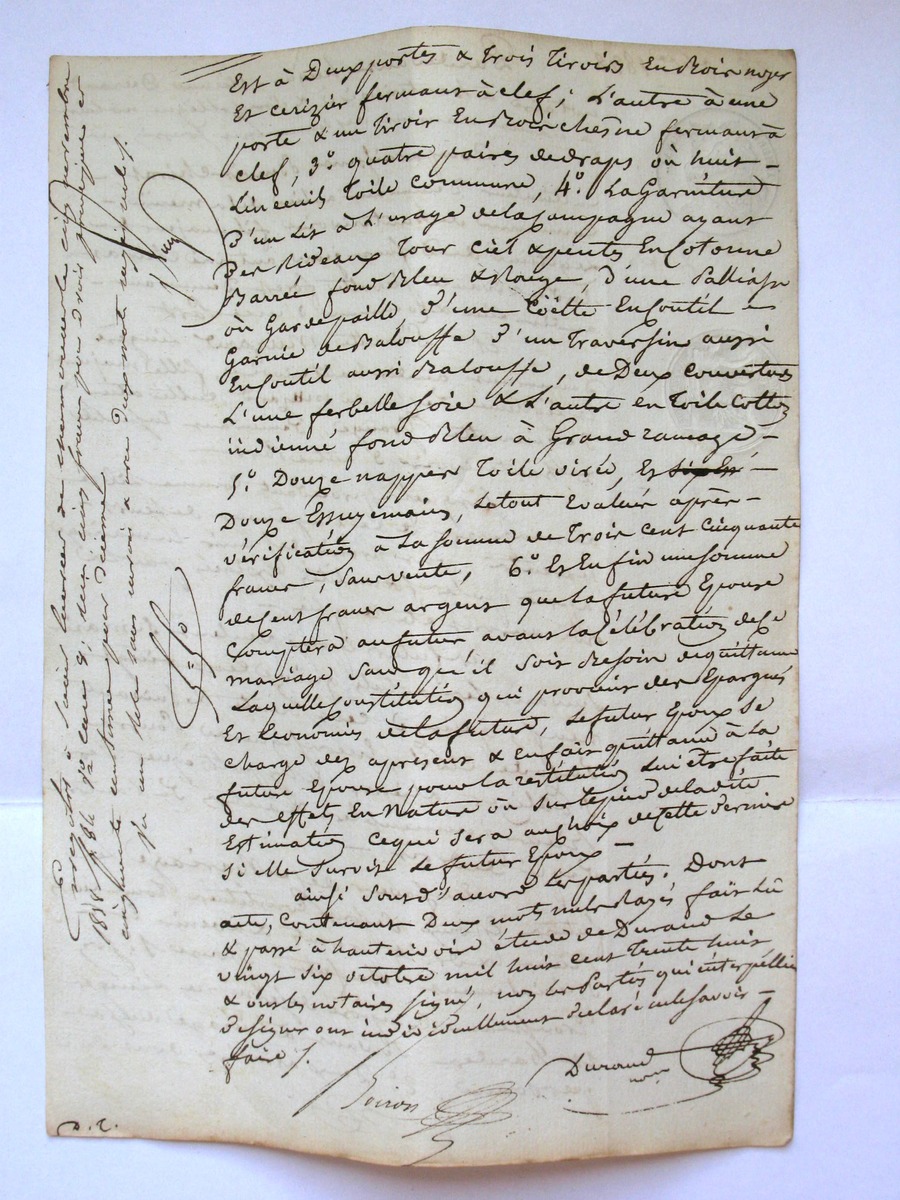 Est à Deux portes & trois Tiroirs En Boir noyer
Et cerizier fermant à clef; L'autre à une
porte & un Tiroir En Boir chesne fermant à
clef, 3.° quatre paires de draps ou huit -
Linceuils Toile commune, 4.° La Garniture
D'un Lit à L'usage de la Campagne ayant
Des Rideaux Tour ciel & pentes En Cotonne
Barrée fond Bleu & Rouge, D'une Palliasse
ou Gardepaille, D'une Coëtte En Coutil -
Garnie de Balouffe D'un Traversin aussi
En Coutil aussi Balouffe, de Deux couvertures
L'une ferbelle soie & L'autre en Toile Cotton
indienne fond Bleu à Grand ramage -
5.° Douze nappes Toile virée, Et -
Douze Essuyemains, le tout Evalué après -
vérification à La somme de Trois cent cinquante
francs, sans vente, 6.° Et Enfin une somme
de Cent francs argent que la future Epouse
Comptera au futur, avant la Célébration de Ce
mariage sans qu'il soit Besoin de quittance
Laquelle Constitution qui provient des Epargnes
Et Economies de la future, le futur Epoux se
charge dez apresent & en fait quittance à La
future Epouse pour la restitution Lui être faite
des effets En Nature ou sur le pied de la dite
Estimation ce qui sera au choix de Cette Dernière
si elle survit Le futur Epoux -
ainsi sont d'accord Les parties. Dont
acte, Contenant Deux mots nuls Razés fait Lû
& passé à hauterivoire étude de Durand Le
vingt six octobre mil huit cent Trente huit
& ont les notaires signé, non les Parties qui interpellées
De signer ont individuellement Declaré ne le savoir -
faire /.
Durand
nore
D. C.
Enregistré à Saint Laurent de Chamousset le cinq novembre
1838 f° 86 r° case 8, reçu cinq francs pour droit fixe et
cinquante centimes pour décime